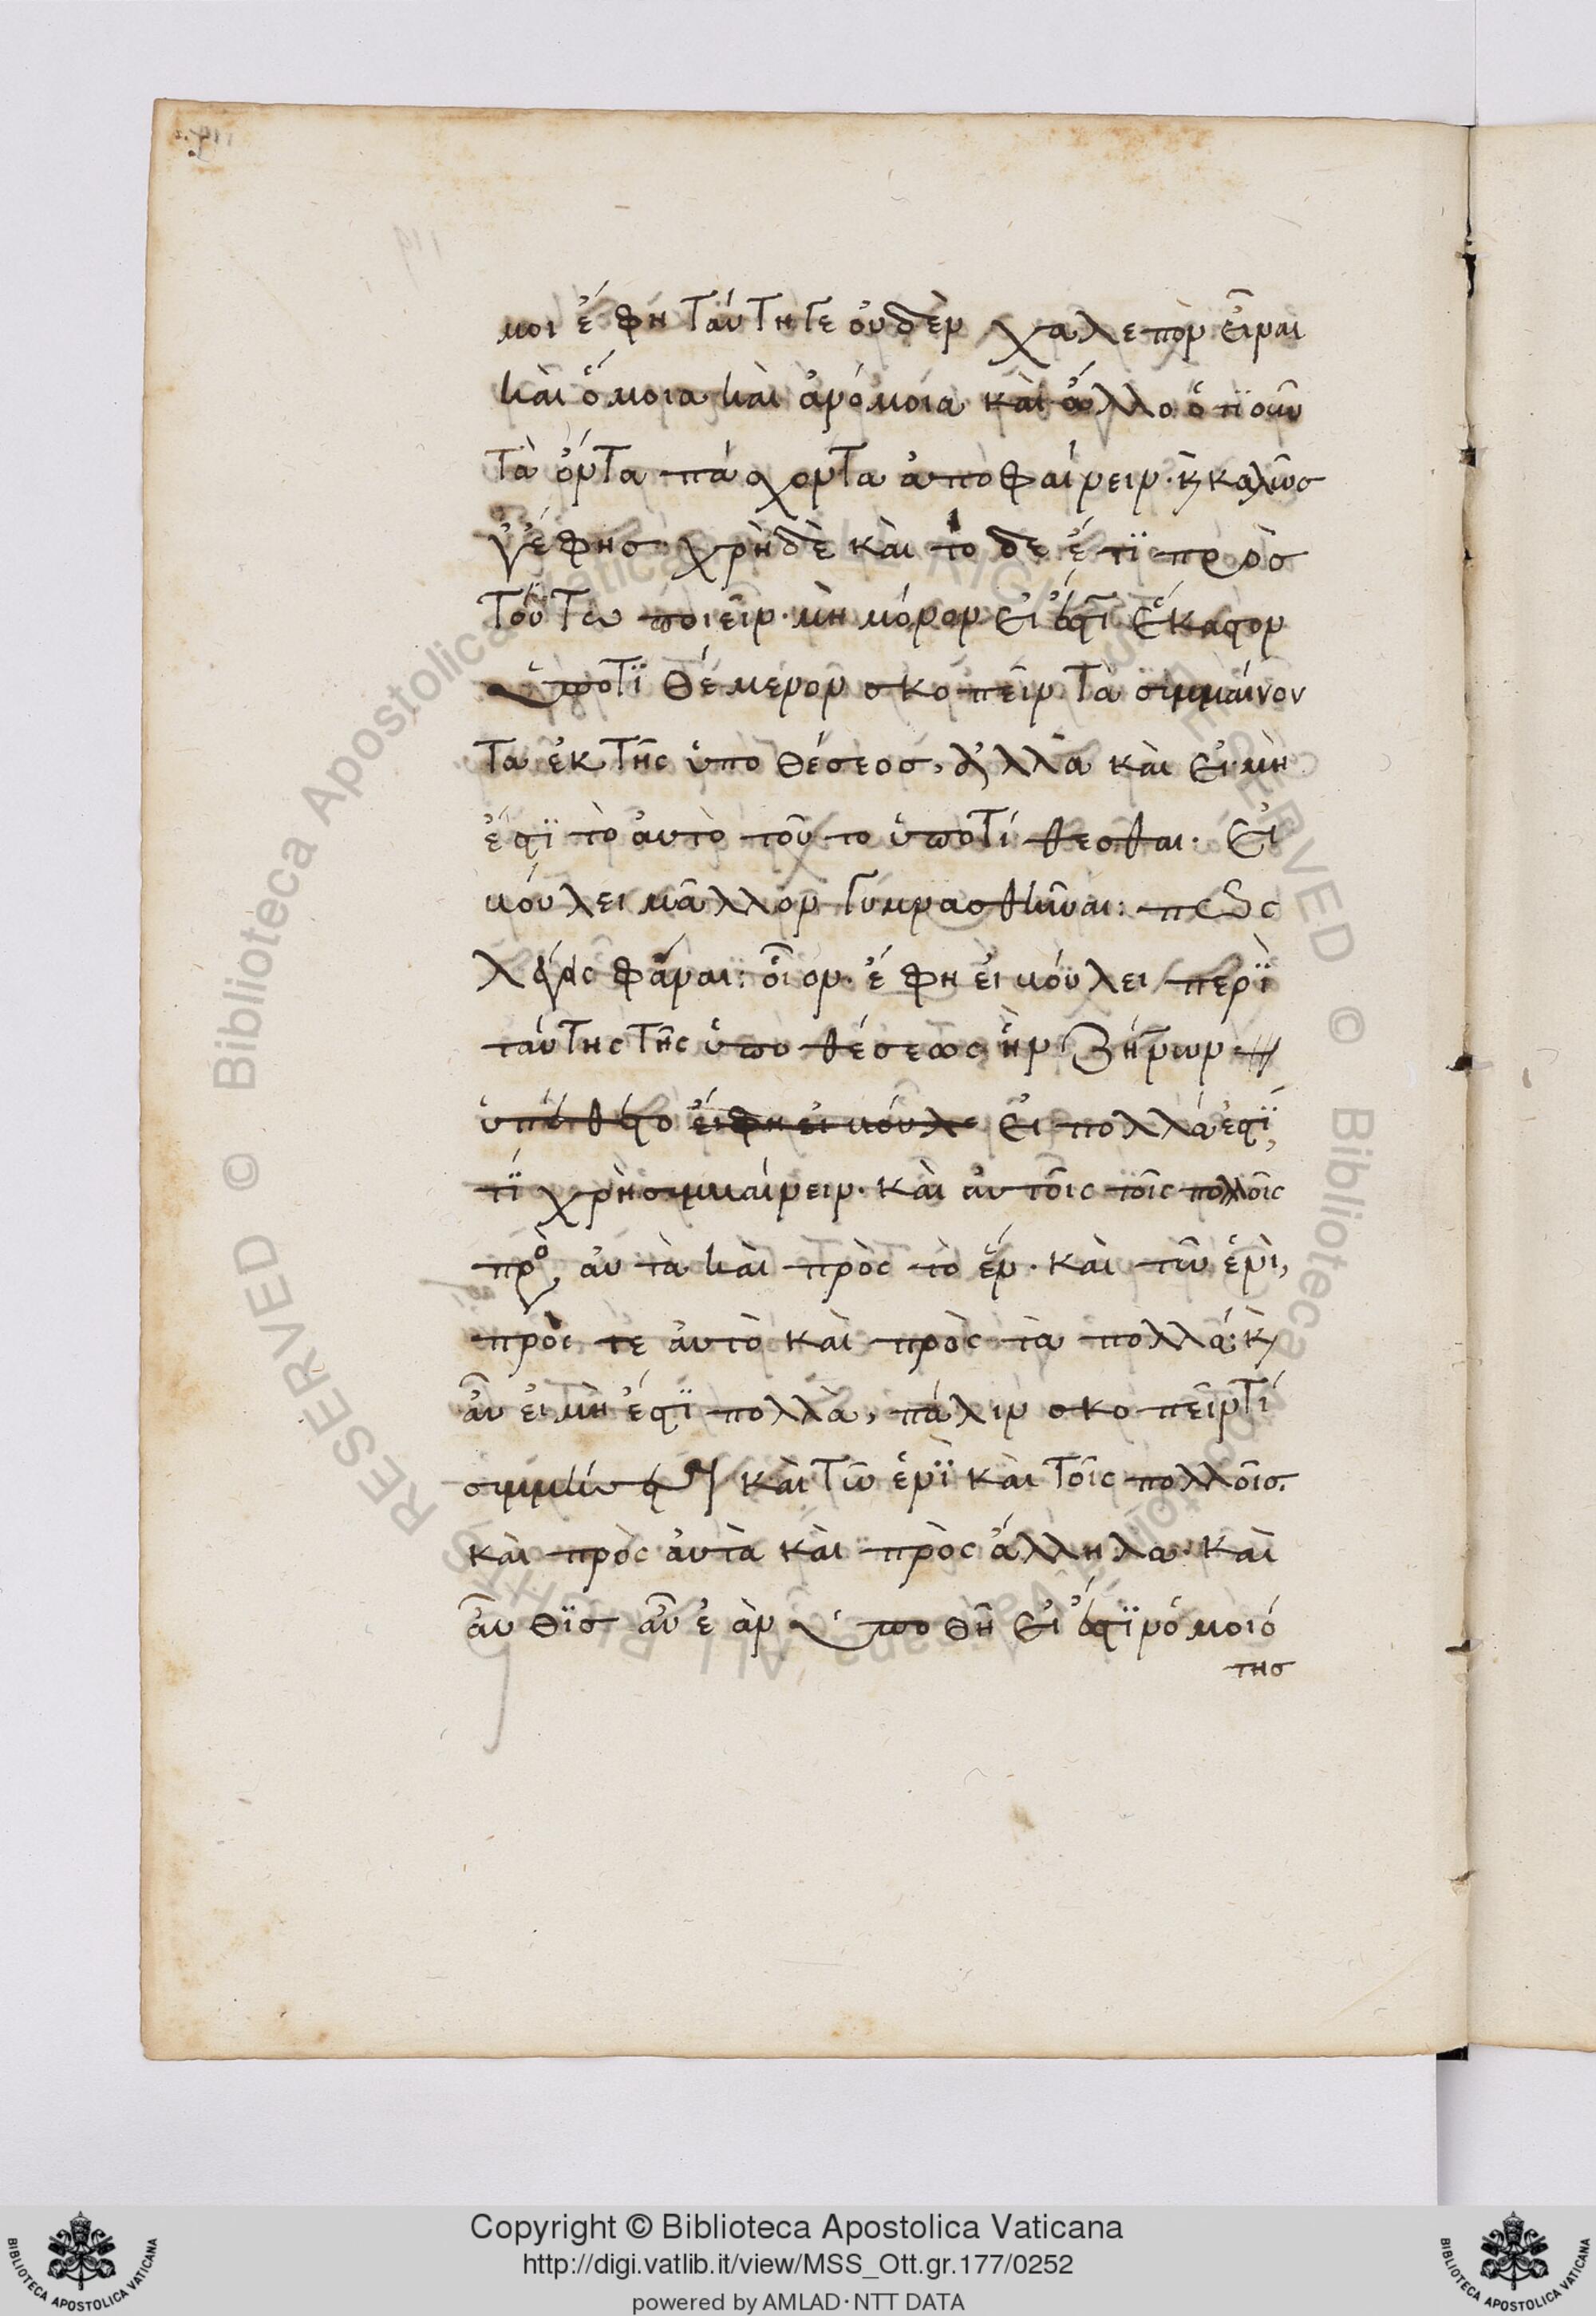 μοι ἔφη ταύτη τε οὐδὲν χαλεπὸν εἶναι
καὶ ὅμοια καὶ ἀνόμοια καὶ ἄλλο ὁτϊοῦν
τὰ ὄντα πάσχοντα ἀποφαίνειν· κ̀ καλῶσ
γ' ἔφησ· χρὴ δὲ καὶ τόδε ἔτϊ πρὸσ
τούτω ποιεῖν· μὴ μόνον εἰ ἔστϊ ἕκαστον
ὑποτϊθέμενον σκοπεῖν τὰ συμβαίνον
τα ἐκ τῆς ὑποθέσεοσ, ἀλλὰ καὶ εἰ μὴ
ἔστϊ τὸ αὐτὸ τοῦτο ὑποτίθεσθαι· εἰ
βούλει μᾶλλον γυμνασθῆναι: πῶς
λέγεις φάναι: οἷον· ἔφη εἰ βούλει περὶ
ταύτης τῆς ὑποθέσεως ἣν Ζήνων
ὑπέθετο εἰ πολλά ἐστϊ,
τί χρὴ συμβαίνειν· καὶ αὐτοῖς τοῖς πολλοῖς
πρὸς αὐτὰ καὶ πρὸς τὸ ἕν· καὶ τῶ ἑνὶ,
πρός τε αὐτὸ καὶ πρὸς τὰ πολλά: κ̀
αὖ εἰ μὴ ἔστϊ πολλὰ, πάλιν σκοπεῖν τί
συμβήσεται καὶ τῶ ἑνὶ καὶ τοῖς πολλοῖσ.
καὶ πρὸς αὐτὰ καὶ πρὸς ἄλληλα· καὶ
αὖθϊσ αὖ ἐὰν ὑποθῆ εἰ ἔστϊν ὁμοιό
τησ
Copyright © Biblioteca Apostolica Vaticana
http://digi.vatlib.it/view/MSS_Ott.gr.177/0252
powered by AMLAD·NTT DATA